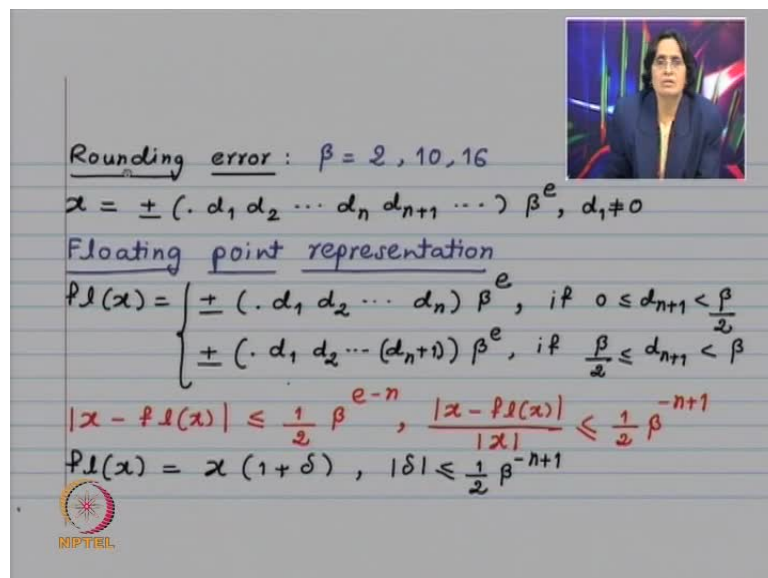 Rounding error : β = 2 , 10 , 16
x = ± (. d₁ d₂ ⋯ dₙ dₙ₊₁ ⋯ ) βᵉ, d₁ ≠ 0
Floating point representation
fl(x) = { ± (. d₁ d₂ ⋯ dₙ) βᵉ, if 0 ≤ dₙ₊₁ < β/2
± (. d₁ d₂ ⋯ (dₙ+1)) βᵉ, if β/2 ≤ dₙ₊₁ < β
|x − fl(x)| ≤ 1/2 β^(e−n), |x − fl(x)|/|x| ≤ 1/2 β^(−n+1)
fl(x) = x (1 + δ) , |δ| ≤ 1/2 β^(−n+1)
NPTEL